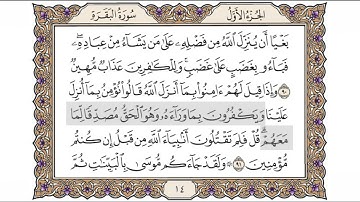 الجزء الأول
سورة البقرة
بغيا أن ينزل الله من فضله على من يشاء من عباده
فباءو بغضب على غضب وللكفرين عذاب مهين
٩٠ وإذا قيل لهم ءامنوا بما أنزل الله قالوا نؤمن بما أنزل
علينا ويكفرون بما وراءه وهو الحق مصدقا لما
معهم قل فلم تقتلون أنبياء الله من قبل إن كنتم
مؤمنين ٩١ ولقد جاءكم موسى بالبينات ثم
١٤